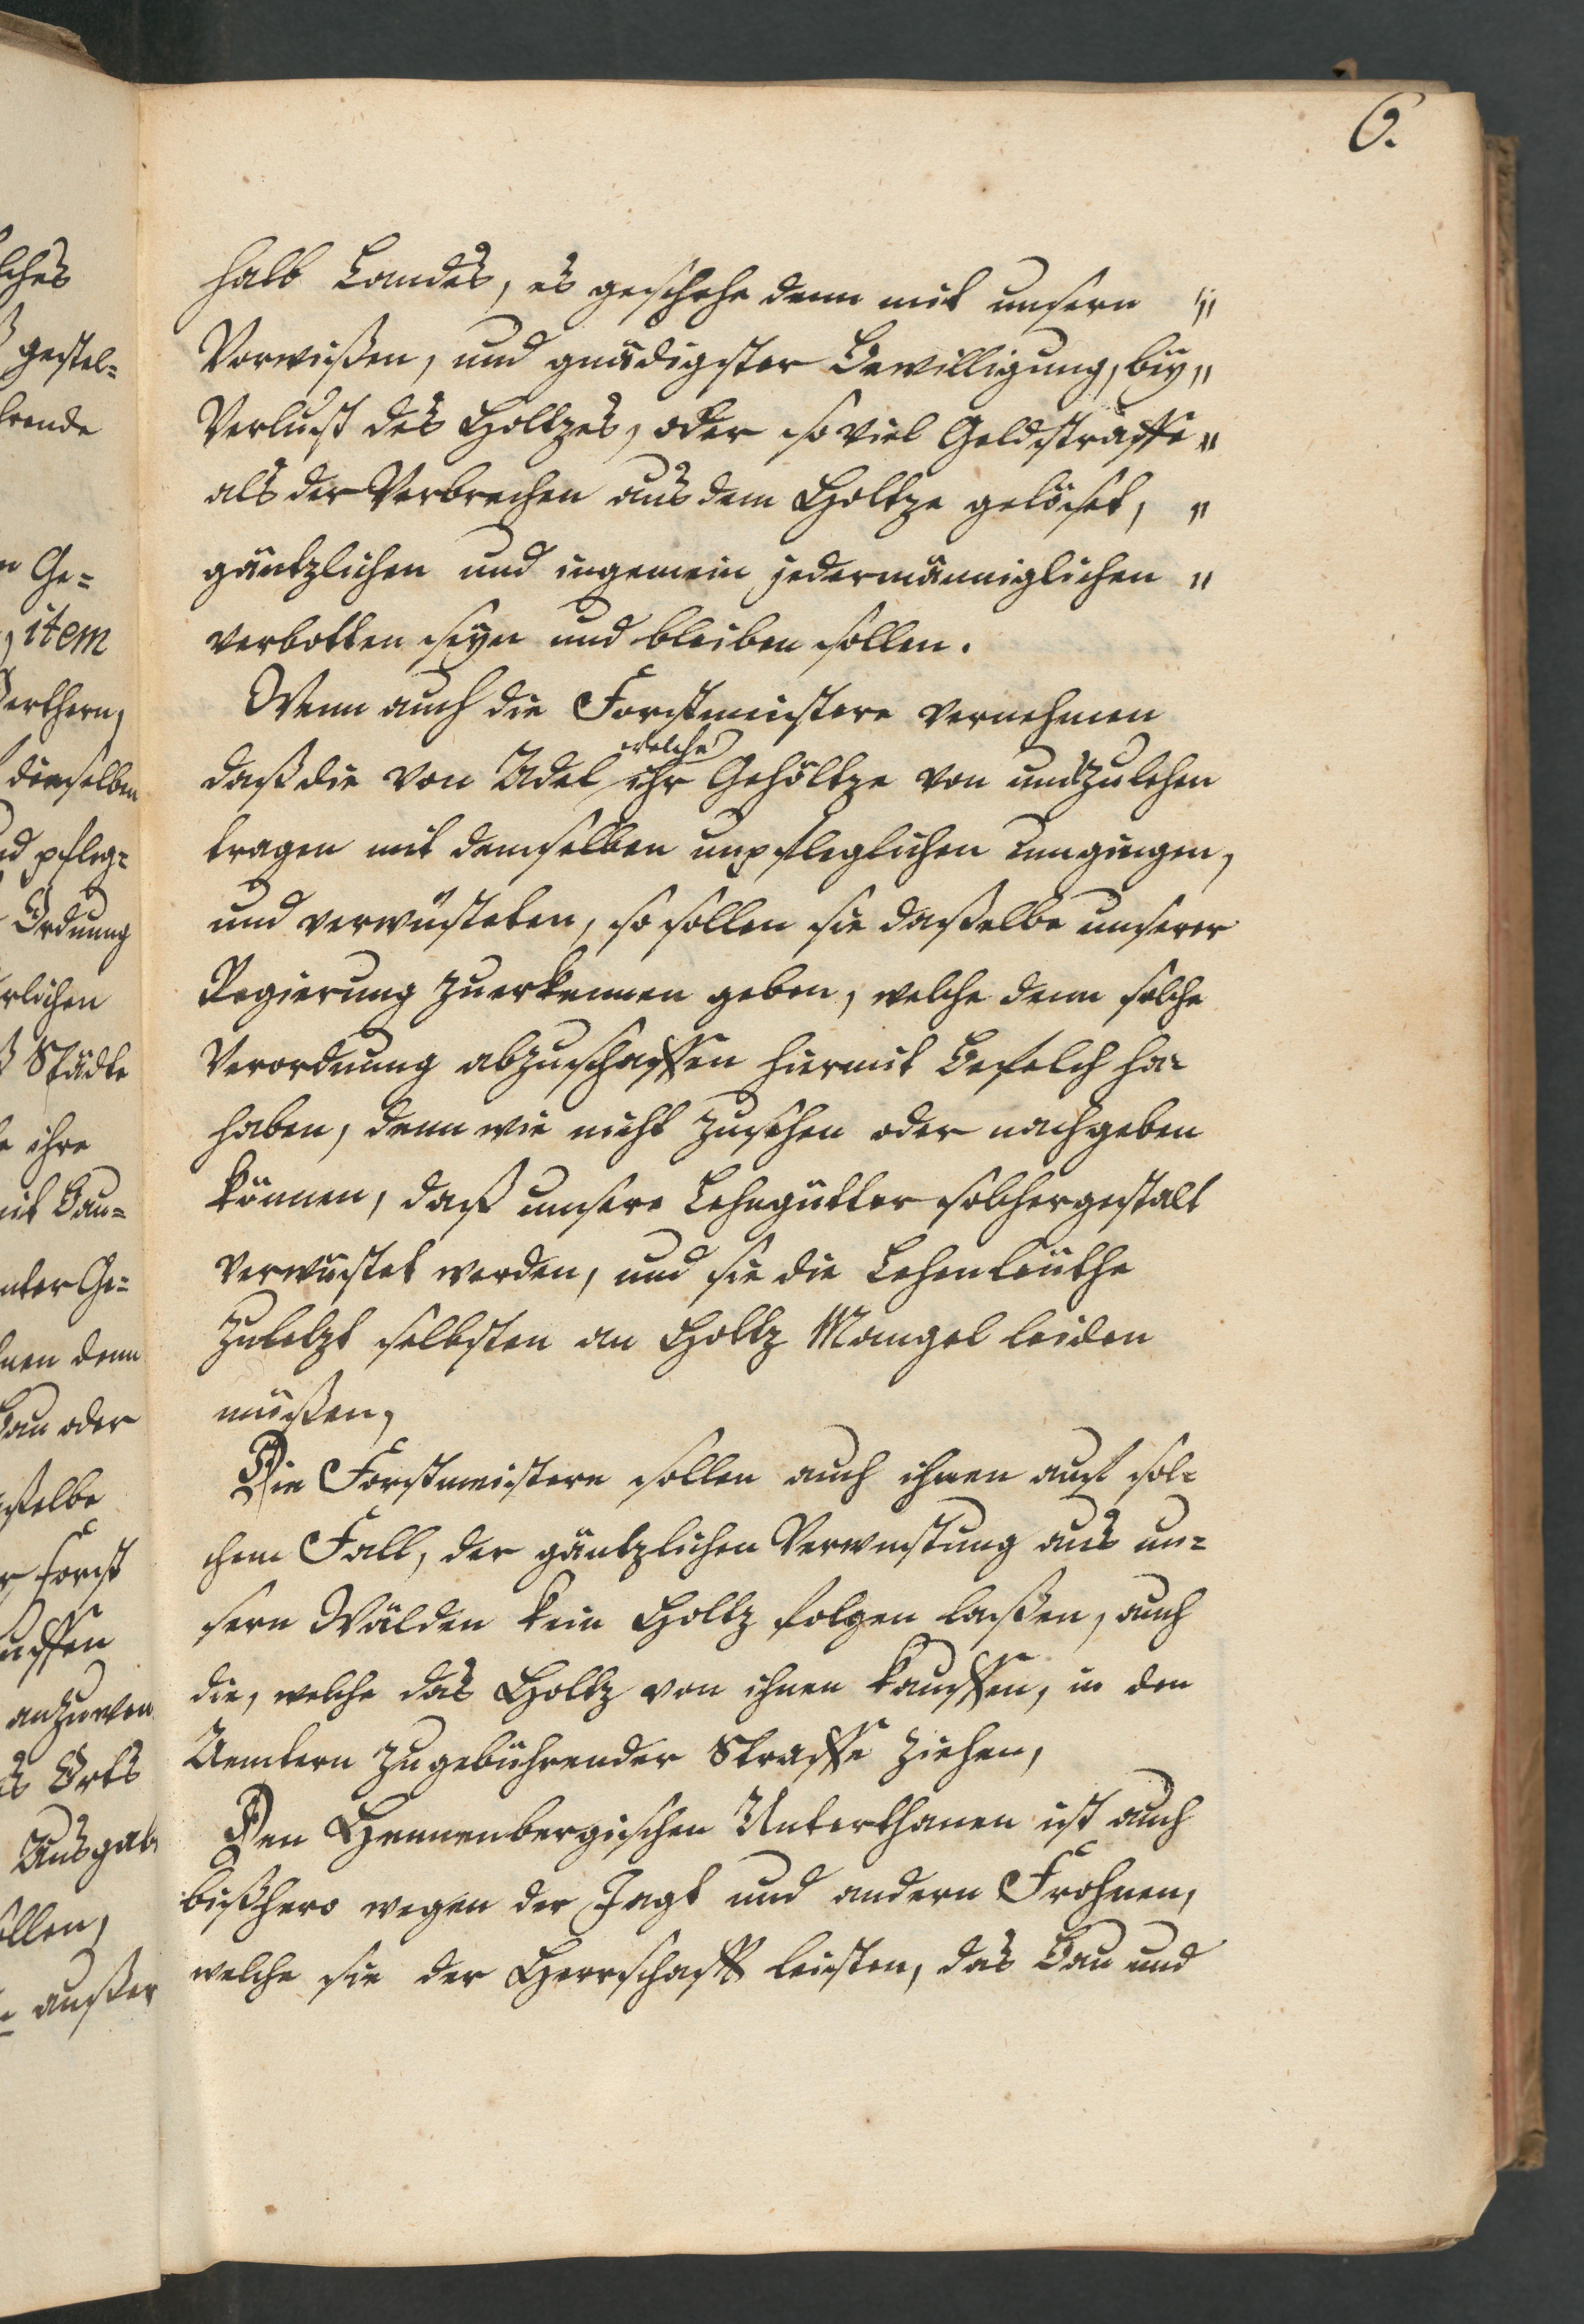 6.
halb Landes, es geschehe denn mit unsern "
Vorwißen, und gnädigster Bewilligung, bey "
Verlust des Holtzes, oder so viel Geldstraffe "
als der Verbrechen aus dem Holtze gelöset, "
gäntzlichen und ingemein jedermänniglichen "
verbotten seyn und bleiben sollen.
Wenn auch die Forstmeistere vernehmen
welche
daß die von Adel ihr Gehöltze von uns zu lehen
tragen mit demselben unpfleglichen umgingen,
und verwüsteten, so sollen sie daßelbe unserer
Regierung zuerkennen geben, welche denn solche
Verordnung abzuschaffen hiermit Befelch ha-
haben, denn wir nicht zusehen oder nachgeben
können, daß unsere Lehngütter solchergestalt
verwüstet werden, und sie die Lehenleüthe
zuletzt selbsten an Holtz Mangel leiden
müßen,
Die Forstmeistere sollen auch ihnen auf sol=
chem Fall, der gäntzlichen Verwustung aus un=
sern Wälden kein Holtz folgen laßen, auch
die, welche das Holtz von ihnen kauffen, in den
Aemtern zu gebührender Straffe ziehen,
Den Hennenbergischen Unterthanen ist auch
bißhero wegen der Jagt und andern Frohnen,
welche sie der Herrschafft leisten, das Bau und